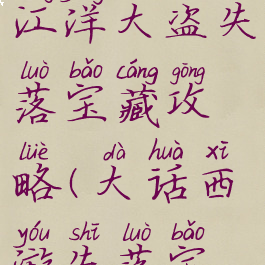 江洋大盗失
luò bǎo cáng gōng
落宝藏攻
lüè dà huà xī
略(大话西
yóu shī luò bǎo
游失落宝